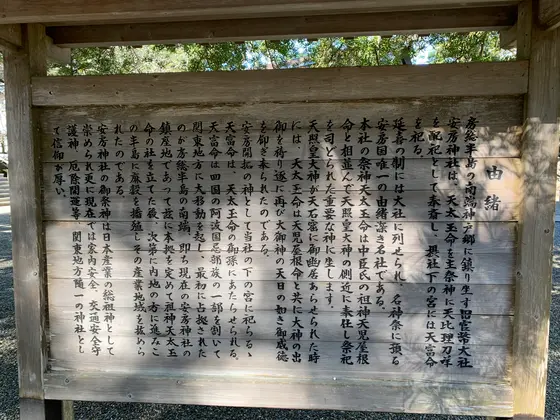 由緒
房総半島の南端神戸郷に鎮り坐す旧官幣大社
安房神社は、天太玉命を主祭神に天比理刀咩命
を配祀として奉斎し、摂社下の宮には天富命
を祀る。
延喜の制には大社に列せられ、名神祭に預る
安房国唯一の由緒深き名社である。
本社の祭神天太玉命は中臣氏の祖神天児屋根
命と相並んで天照皇大神の側近に奉仕し祭祀
を司どられた重要な神に坐します。
天照皇大神が天石窟に御幽居あらせられた時
には、天太玉命は天児屋根命と共に大神の出
御を祈り遂に再び大御神の天日の如き御威徳
を仰ぎ奉られたのである。
安房開拓の神として当社の下の宮に祀らるゝ
天富命は、天太玉命の御孫にあたらせられる。
天富命は四国の阿波国忌部族の一部を割いて
関東地方に大移動を起し、最初に占拠された
のが房総半島の南端、即ち現在の安房神社の
鎮座地であって茲に本拠を定めて祖神天太玉
命の社を立てた後、次第に内地の方に進みこ
の半島に麻穀を播殖しその産業地域を拡めら
れたのである。
安房神社の御祭神は日本産業の総祖神として
崇められ更に現在では家内安全、交通安全守
護神、厄除開運等、関東地方随一の神社とし
て信仰が厚い。